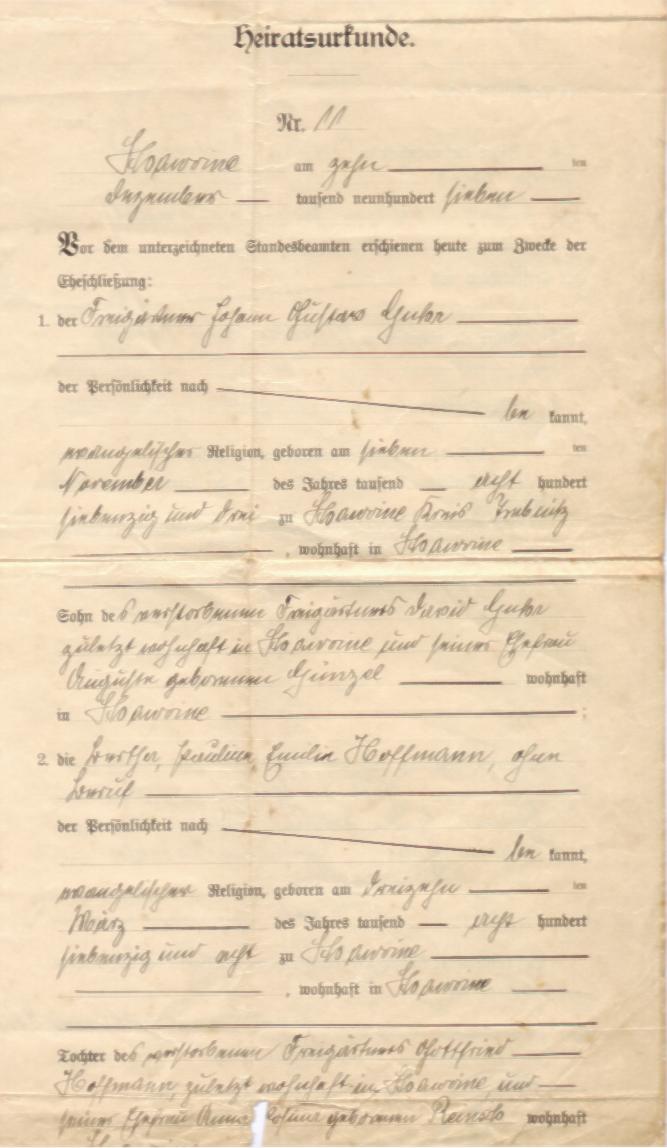 Heiratsurkunde.
Nr. 11
Kawoine am zehn ten
Dezember tausend neunhundert sieben
Vor dem unterzeichneten Standesbeamten erschienen heute zum Zwecke der
Eheschließung:
1. der Freigärtner Johann Gustav
der Persönlichkeit nach
be kannt,
evangelischer Religion, geboren am sieben ten
November des Jahres tausend acht hundert
siebenzig und drei zu Kawoine Kreis Trebnitz
, wohnhaft in Kawoine
Sohn des verstorbenen Freigärtners David
zuletzt wohnhaft in Kawoine und seiner Ehefrau
Auguste geborenen Günzel wohnhaft
in Kawoine ;
2. die Bertha, Pauline, Emilie Hoffmann, ohne
Beruf
der Persönlichkeit nach
be kannt,
evangelischer Religion, geboren am dreizehn ten
März des Jahres tausend acht hundert
siebenzig und acht zu Kawoine
, wohnhaft in Kawoine
Tochter des verstorbenen Freigärtners Gottfried
Hoffmann, zuletzt wohnhaft in Kawoine, und
seiner Ehefrau Anna Rosina geborenen wohnhaft